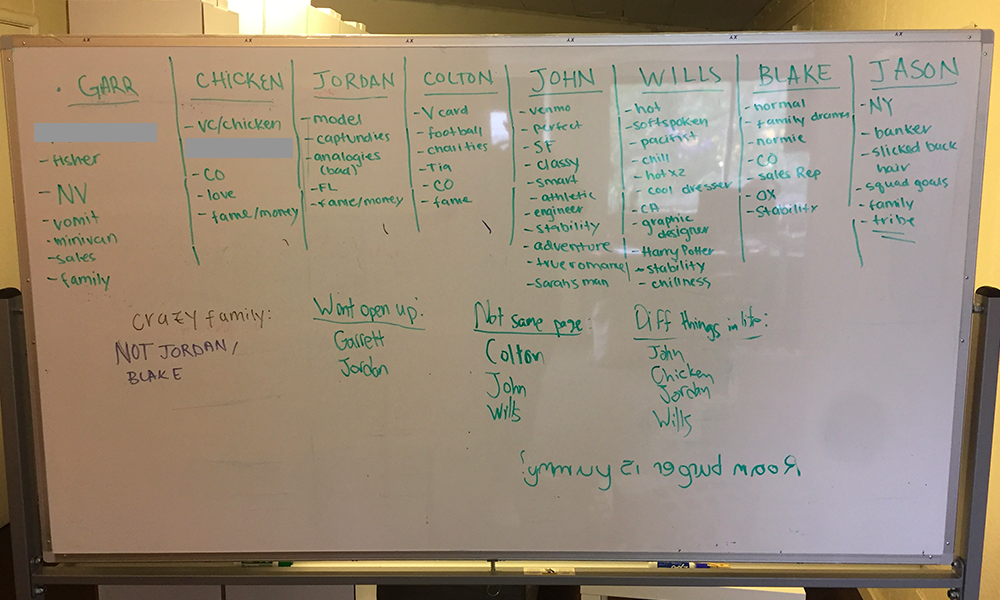 GARR
- fisher
- NV
- vomit
- minivan
- sales
- family
CHICKEN
- VC/chicken
- CO
- love
- fame/money
JORDAN
- model
- captundies
- analogies
(bad)
- FL
- fame/money
COLTON
- V card
- football
- charities
- Tia
- CO
- fame
JOHN
- venmo
- perfect
- SF
- classy
- smart
- athletic
- engineer
- stability
- adventure
- true romance
- Sarah's man
WILLS
- hot
- softspoken
- pacifist
- chill
- hot x2
- cool dresser
- CA
- graphic
designer
- Harry Potter
- stability
- chillness
BLAKE
- normal
- family drama
- normie
- CO
- sales Rep
- OX
- Stability
JASON
- NY
- banker
- slicked back
hair
- squad goals
- family
- tribe
crazy family:
NOT JORDAN/
BLAKE
Wont open up:
Garrett
Jordan
Not same page:
Colton
John
Wills
Diff things in life:
John
Chicken
Jordan
Wills
Roam burger is yummy!